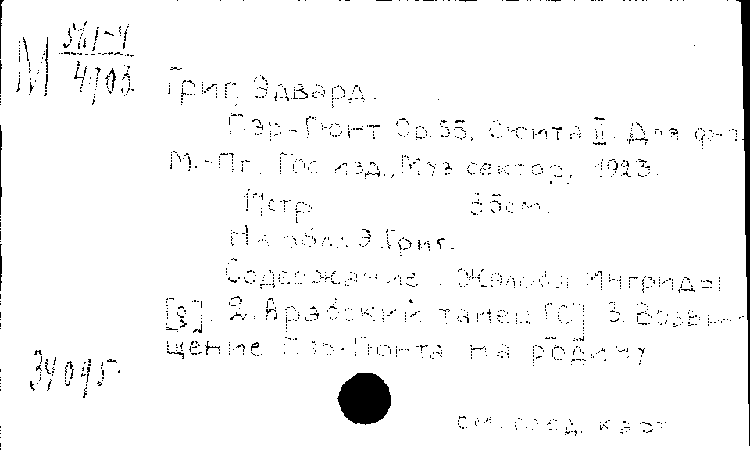 М 561-4
4703
Григ, Эдвард.
Пэр-Гюнт Ор.55. Сюита II. Для ф-п.
М.-Пг. Гос изд., Муз сектор, 1923.
стр 35см.
На обл. Э.Григ.
Содержание. Жалоба Ингрид=
[g]. 2. Арабский танец [C] 3. Возвра-
щение Пэр-Гюнта на родину
34095.
см. след. карт